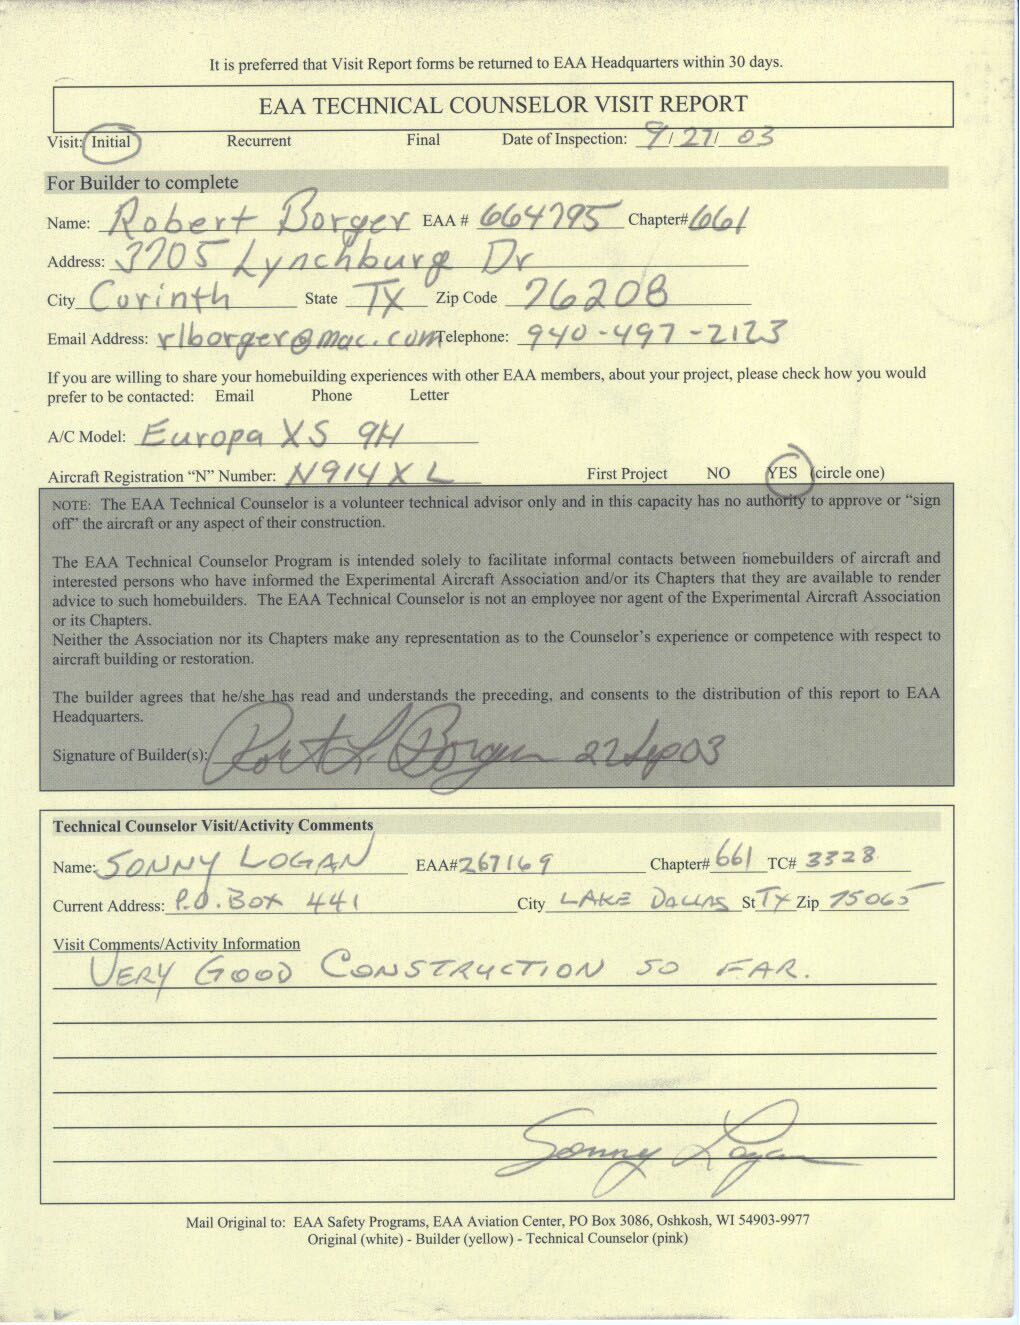 It is preferred that Visit Report forms be returned to EAA Headquarters within 30 days.
EAA TECHNICAL COUNSELOR VISIT REPORT
Visit: Initial Recurrent Final Date of Inspection: 9/27/03
For Builder to complete
Name: Robert Borger EAA # 664795 Chapter# 661
Address: 3705 Lynchburg Dr
City Corinth State TX Zip Code 76208
Email Address: rlborger@mac.com Telephone: 940-497-2123
If you are willing to share your homebuilding experiences with other EAA members, about your project, please check how you would
prefer to be contacted: Email Phone Letter
A/C Model: Europa XS 9H
Aircraft Registration “N” Number: N914XL First Project NO YES (circle one)
NOTE: The EAA Technical Counselor is a volunteer technical advisor only and in this capacity has no authority to approve or “sign
off” the aircraft or any aspect of their construction.
The EAA Technical Counselor Program is intended solely to facilitate informal contacts between homebuilders of aircraft and
interested persons who have informed the Experimental Aircraft Association and/or its Chapters that they are available to render
advice to such homebuilders. The EAA Technical Counselor is not an employee nor agent of the Experimental Aircraft Association
or its Chapters.
Neither the Association nor its Chapters make any representation as to the Counselor’s experience or competence with respect to
aircraft building or restoration.
The builder agrees that he/she has read and understands the preceding, and consents to the distribution of this report to EAA
Headquarters.
Signature of Builder(s): Robert L Borger 27 Sep 03
Technical Counselor Visit/Activity Comments
Name: SONNY LOGAN EAA# 267169 Chapter# 661 TC# 3328
Current Address: P.O. BOX 441 City LAKE DALLAS St TX Zip 75065
Visit Comments/Activity Information
VERY GOOD CONSTRUCTION SO FAR.
Sonny Logan
Mail Original to: EAA Safety Programs, EAA Aviation Center, PO Box 3086, Oshkosh, WI 54903-9977
Original (white) - Builder (yellow) - Technical Counselor (pink)